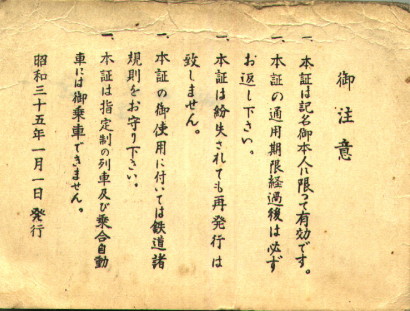 御注意
一、本証は記名御本人に限って有効です。
一、本証の通用期限経過後は必ず
お返し下さい。
一、本証は紛失されても再発行は
致しません。
一、本証の御使用に付いては鉄道諸
規則をお守り下さい。
一、本証は指定制の列車及び乗合自動
車には御乗車できません。
昭和三十五年一月一日発行